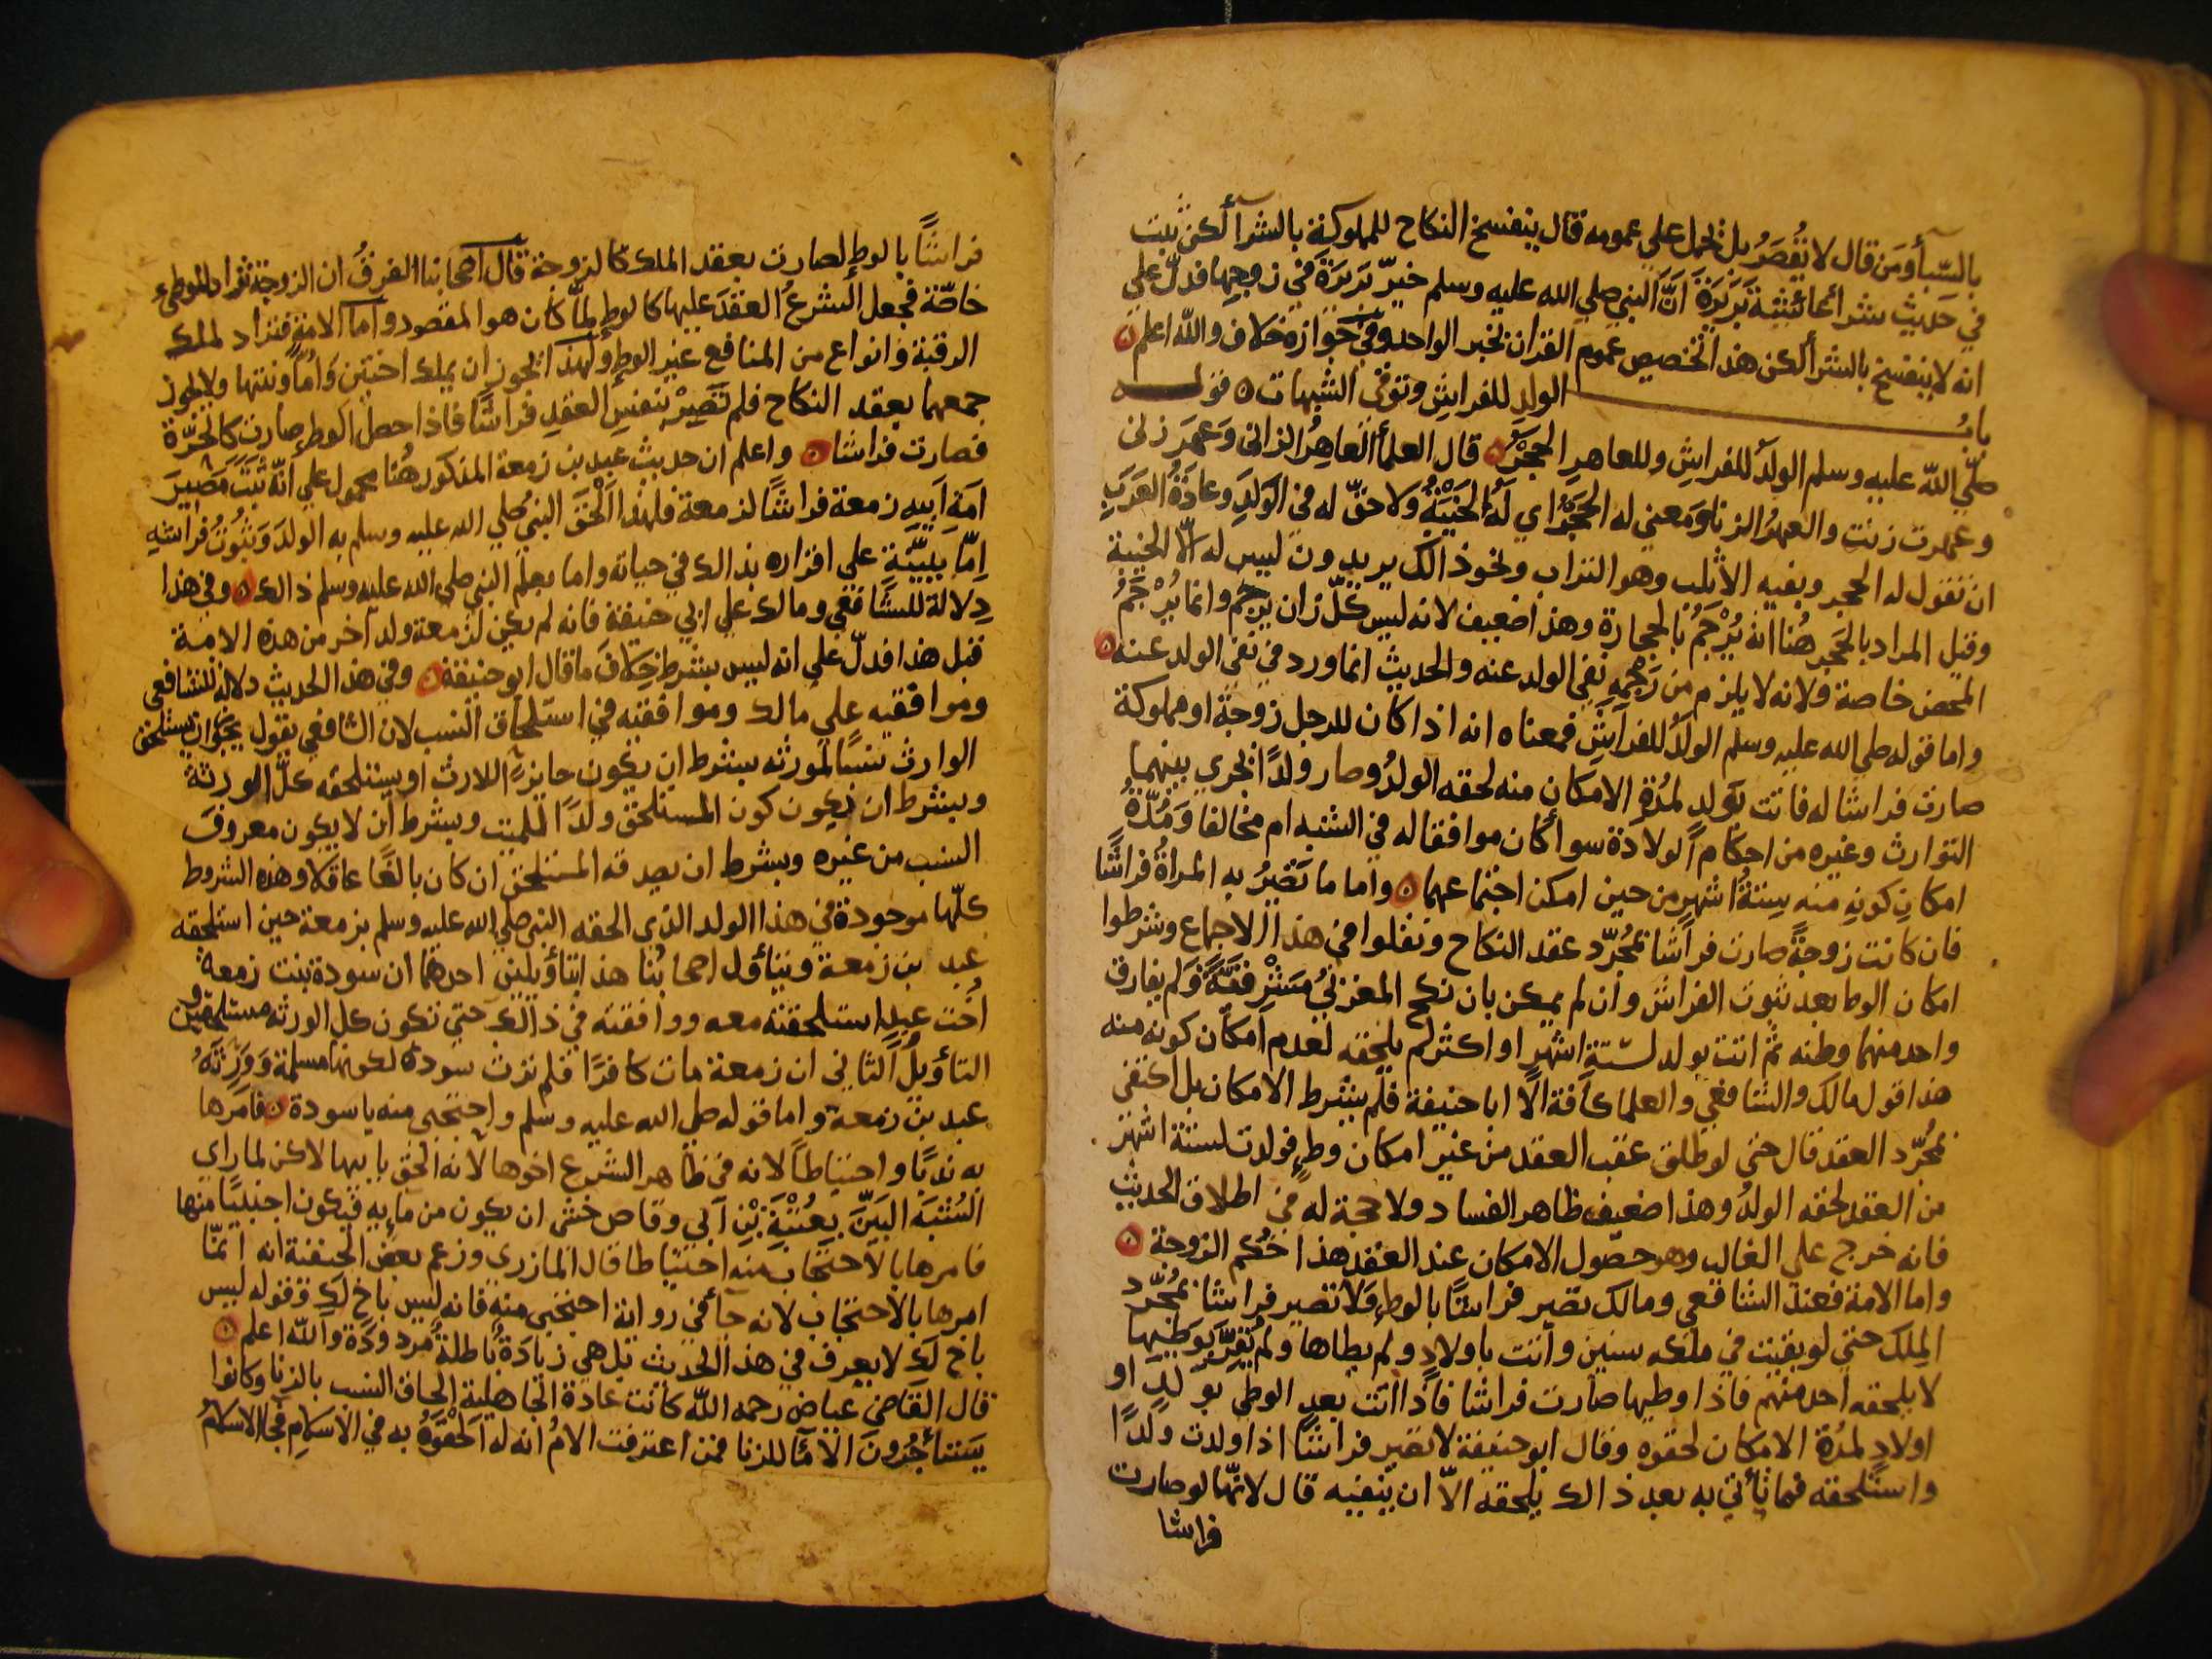 بالسبأ ومن قال لا يُقصَرُ بل يحمل على عمومه قال ينفسخ النكاح للمملوكة بالشرآ لكن ثبت
في حديث شرا عائشة بَرِيْرَة انَّ النبي صلي الله عليه وسلم خيّر بَرِيْرَةَ في زوجها فدلّ على
انه لا ينفسخ بالشرأ لكن هذا تخصيص عموم القران بخبر الواحد وفي جوازه خلاف والله اعلم ٥
باب الولد للفراشِ وتوقي الشبهات ٥ قوله
صلّي الله عليه وسلم الولدُ للفراشِ وللعاهر الحجَرُ ٥ قال العلمأ العاهِرُ الزاني وَعَهَرَ زنى
وعهرت زنت والعِهرُ الزنا ومعني له الحَجَرُ اي لَهُ الخَيْبَةُ ولا حقّ له في الوَلَدِ وعادَةُ العَرَبِ
ان تقول له الحجر وبفيه الأثلب وهو التراب ونحو ذالك يريدون ليس له الّا الخيبة
وقيل المراد بالحَجَر هُنا انهُ يُرْجَمُ بالحجارة وهذا ضعيف لانه ليس كلّ زان يرجم وانما يُرْجَمُ
المحصن خاصة ولانه لا يلزم من رَجْمِهِ نفي الولد عنه والحديث انما ورد في نفي الولد عنه ٥
واما قوله صلي الله عليه وسلم الولَدُ للفراشِ فمعناه انه اذا كان للرجل زوجَةٌ او مملوكة
صارت فراشا له فاتت بولد لمُدّةِ الامكان منه لحقه الولدُ وصار ولدًا يجري بينهما
التوارث وغيره من احكام الولادة سوا أكان موافقا له في الشبه ام مخالفا وَمُدّةُ
امكانِ كونهِ منه سِتةُ اشهرٍ من حين امكن اجتماعهما ٥ واما ما تَصِيرُ به المراةُ فراشًا
فان كانت زوجةً صارت فراشًا بمُجَرّد عقد النكاح ونقلوا في هذا الاجماع وشرطوا
امكان الوطا بعد ثبوت الفراش وان لم يمكن بان نكح المغربيُّ مَشْرِقيَّةً وَلم يفارق
واحد منهما وطنه ثم اتت بولد لستةِ اشهرٍ او اكثر لم يلحقه لعدم امكان كونه منه
هذا قول مالك والشافعي والعلما كافة الّا ابا حنيفة فلم يشترط الامكان بل اكتفى
بمُجَرّد العقد قال حتي لو طلق عقب العقد من غير امكان وطءٍ فولدت لستة اشهر
من العقد لحقه الولدُ وهذا ضعيف ظاهر الفساد ولا حجة له في اطلاق الحديث
فانه خرج علي الغالب وهو حصول الامكان عند العقد هذا حُكم الزوجة ٥
واما الامة فعند الشافعي ومالك تصير فراشًا بالوطءِ ولا تصير فراشًا بمُجَرّد
المِلك حتي لو بقيت في ملكه سنين وأتت باولادٍ ولم يطاها ولم يُقِرَّ بوَطئِها
لا يلحقه احد منهم فاذا وطيها صارت فراشا فاذا اتت بعد الوطي بولدٍ او
اولادٍ لمدّة الامكان لحقوه وقال ابو حنيفة لا تصير فراشًا الا اذا ولدت ولدًا
واستلحقه فما تأتي به بعد ذالك يلحقه الاّ ان ينفيه قال لانّها لو صارت
فراشا
فراشًا بالوطءِ لصارت بعقد الملك كالزوجة قال اصحابنا الفرقُ ان الزوجة تُراد للوطئ
خاصّة فجعل الشرعُ العقدَ عليها كالوطءِ لمّا كان هو المقصود واما الامة فتراد لملك
الرقبة وانواع من المنافع غير الوطءِ ولهذا يجوز ان يملك اختين وَأمّا وبنتها ولا يجوز
جمعهما بعقد النكاح فلم تَصِيرْ بنفسِ العقدِ فراشًا فاذا حصل الوطء صارت كالحُرّة
فصارت فراشا ٥ واعلم ان حديث عبد بن زمعة المذكور هُنا محمول علي انّه ثبت مَصِيرَ
اَمَةِ اَبِيهِ زمعة فراشًا لزمعة فلهذا اَلْحَقَ النبي صلي الله عليه وسلم به الولدَ وَثبُوتُ فراشِهِ
اِمّا ببيّنةٍ علي اقراره بذالك في حياته واما بعِلم النبي صلي الله عليه وسلم ذالك ٥ وفي هذا
دِلالة للشافعي ومالك علي ابي حنيفة فانه لم يكن لزمعة ولد آخر من هذه الامة
قبل هذا فدلّ علي انه ليس بشرط خِلافَ ما قال ابو حنيفة ٥ وفي هذا الحديث دلالة للشافعى
وموافقيه علي مالك وموافقيه في استلحاق النسب لان الشافعي يقول يجوز ان يستلحق
الوارث نسبًا لمورثه بشرط ان يكون حايزًا للارث او يستلحقه كلّ الورثة
وبشرط ان يكون كون المستلحق ولدًا للميت وبشرط أن لا يكون معروف
النسب من غيره وبشرط ان يصدقه المستلحق ان كان بالغًا عاقلا وهذه الشروط
كلّها موجودة في هذا الولد الذي الحقه النبي صلي الله عليه وسلم بزمعة حين استلحقه
عبد بن زمعة ويتأول اصحابُنا هذا بتأويلين احدهما ان سودة بنت زمعة
أُخت عبد استلحقته معه ووافقته في ذالك حتي تكون كل الورثة مستلحقين و
التأويلُ الثاني ان زمعة مات كافرًا فلم ترث سودة لكونها مسلمة وَوَرِثَهُ
عبد بن زمعة واما قوله صلي الله عليه وسلم واحتجبى منه ياسودة ٥ فامَرها
به ندبًا واحتياطًا لانه في ظاهر الشرع اخوها لانه الحق بابيها لاكن لما راي
الشَبَه البيِّن بعُتْبَةَ بْن أبي وقاص خشى ان يكون من مايِهِ فيكون اجنبيًا منها
فامرها بالاحتجاب منه احتياطا قال المازرى وزعم بعض الحنفية انه انمّا
امرها بالاحتجاب لانه جأ في رواية احتجبى منهِ فانه ليس باخ لكِ وقوله ليس
باخ لكِ لا يعرف في هذا الحديث بل هي زيادَة باطلةٌ مردودَة والله اعلم ٥
قال القاضي عياض رحمه الله كانت عادة الجاهلية الحاق النسب بالزنا وكانوا
يستأجُرونَ الامأ للزنا فمن اعترفت الامُ انه له اَلْحَقوُهُ به في الاسلامِ فجا الاسلامُ